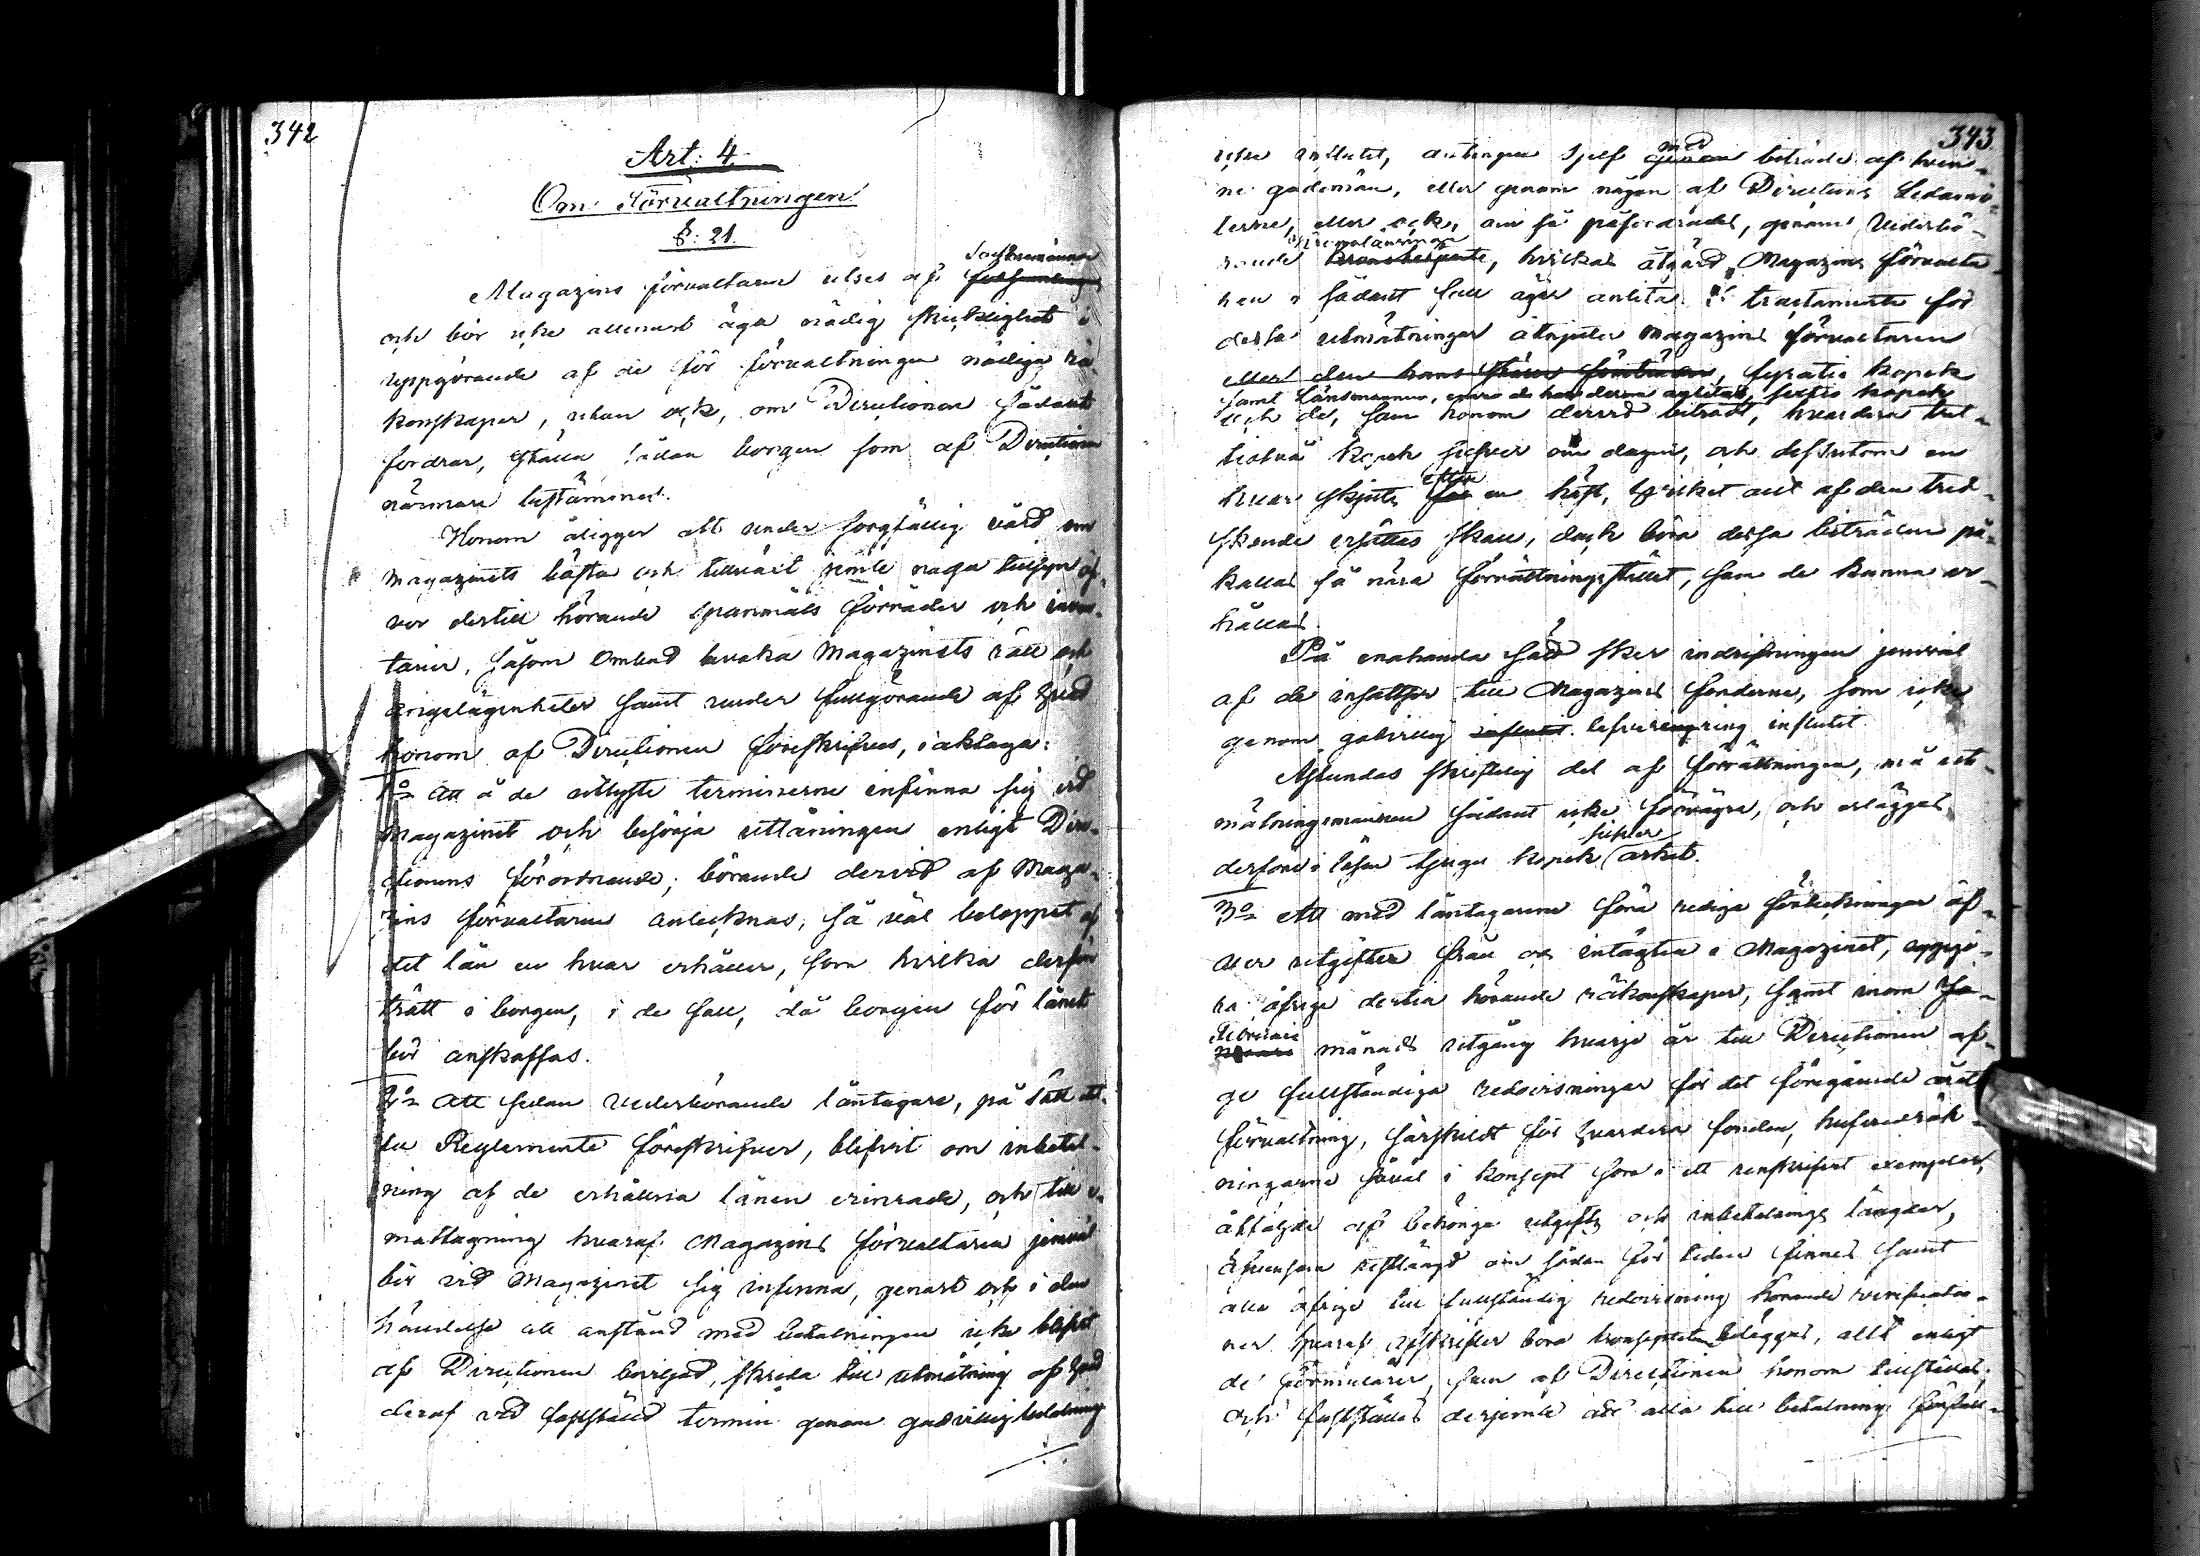 342
Art: 4.
Om Förvaltningen
§: 21.
Sockenmännen
Magazins förvaltaren utses af
och bör icke allenast äga nödig skicklighet i
uppgörande af de för förvaltningen nödiga rä-
kenskaper, utan ock, om Directionen sådant
fordrar, ställa sådan borgen som af Directionen
närmare bestämmes.
Honom åligger att under sorgfällig vård om
Magazinets bästa och tillväxt jemte noga tillsyn öf-
ver dertill hörande spannmåls förråder och inven-
tarier, såsom Ombud bevaka Magazinets rätt och
angelägenheter samt under fullgörande af hvad
honom af Directionen föreskrifves, iakttaga:
1o Att å de utlyste terminerne infinna sig vid
Magazinet och besörja utlåningen enligt Direc-
tionens förordnande; börande dervid af Maga-
zins förvaltaren antecknas, så väl beloppet af
det lån en hvar erhåller, som hvilka derför
trädt i borgen, i de fall, då borgen för lånet
bör anskaffas.
2o Att sedan vederbörande låntagare, på sätt det-
ta Reglemente föreskrifver, blifvit om inbetal-
ning af de erhållna lånen erinrade, och till e-
mottagning hvaraf Magazins förvaltaren jemväl
bör vid Magazinet sig infinna, genast och i den
händelse att anstånd med betalningen icke blifvit
af Directionen beviljad, skrida till utmätning af hvad
deraf vid fastställd termin genom godvillig betalning
343.
icke influtit, antingen sjelf med biträde af tven-
ne godemän, eller genom någon af Directions Ledamö-
terne, eller ock, om så påfordrades, genom vederbö-
rande Kronolänsman, hvilkas åtgärd Magazins förvalta-
ren i sådant fall äger anlita. I tractamente för
dessa utmätningar åtnjuter Magazins förvaltaren
eller den hans ställe företräder, fyratio kopek
samt Länsmannen, enär de hans derom anlitats, sextio kopek
och de, som honom dervid biträdt, hvardera tret-
tiotvå kopek silfver om dagen, och dessutom en
hvar skjuts efter en häst, hvilket allt af den tred-
skende ersättas skall, dock böra dessa biträden på-
kallas så nära förrättningsstället, som de kunna er-
hållas.
På enahanda sätt sker indrifningen jemväl
af de insatser till Magazins fonderne, som icke
genom godvillig lefverering influtit.
Äskundas skriftelig del af förrättningen, må ut-
mätningsmannen sådant icke förvägra, och erlägges
derföre i lösen tjugu kopek silfver arket.
3o Att med låntagarne föra rediga förteckningar öf-
ver utgifter från och intägter i Magazinet, uppgö-
ra öfrige dertill hörande räkenskaper, samt inom
Februarii månads utgång hvarje år till Directionen af-
ge fullständiga redovisningar för det föregående årets
förvaltning, särskildt för hvardera fonden, hufvudräk-
ningarne såväl i koncept som i ett renskrifvet exemplar,
åtföljde af behöriga utgifts och inbetalnings längder,
äfvensom restlängd om sådan för tiden finnes samt
alla öfriga till fullständig redovisning hörande verificatio-
ner hvaraf afskrifter böra koncepten beläggas, allt enligt
de formulärer, som af Directionen honom tillställas,
och fastställes derjemte att alla till betalning förfall-